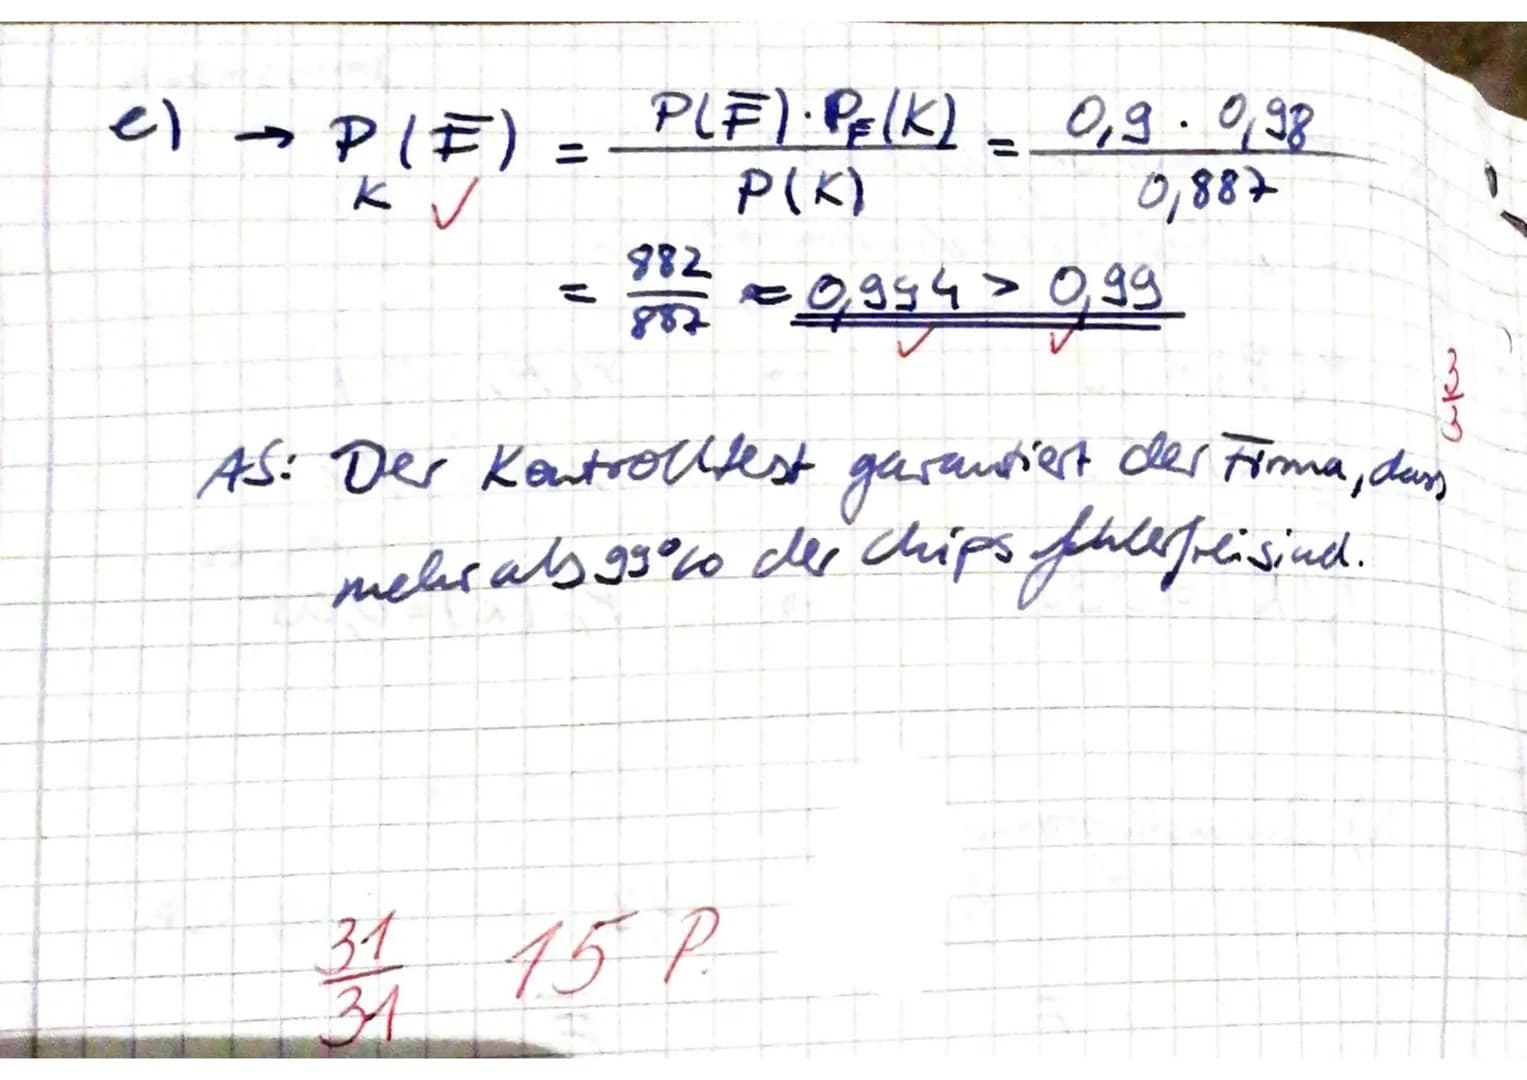 e) → P_K(F̅) = P(F̅)·P_F(K) / P(K) = 0,9 · 0,98 / 0,887
= 882 / 887 ≈ 0,994 > 0,99
3/3
AS: Der Kontrolltest garantiert der Firma, dass
mehr als 99% der Chips fehlerfrei sind.
31/31 15 P.